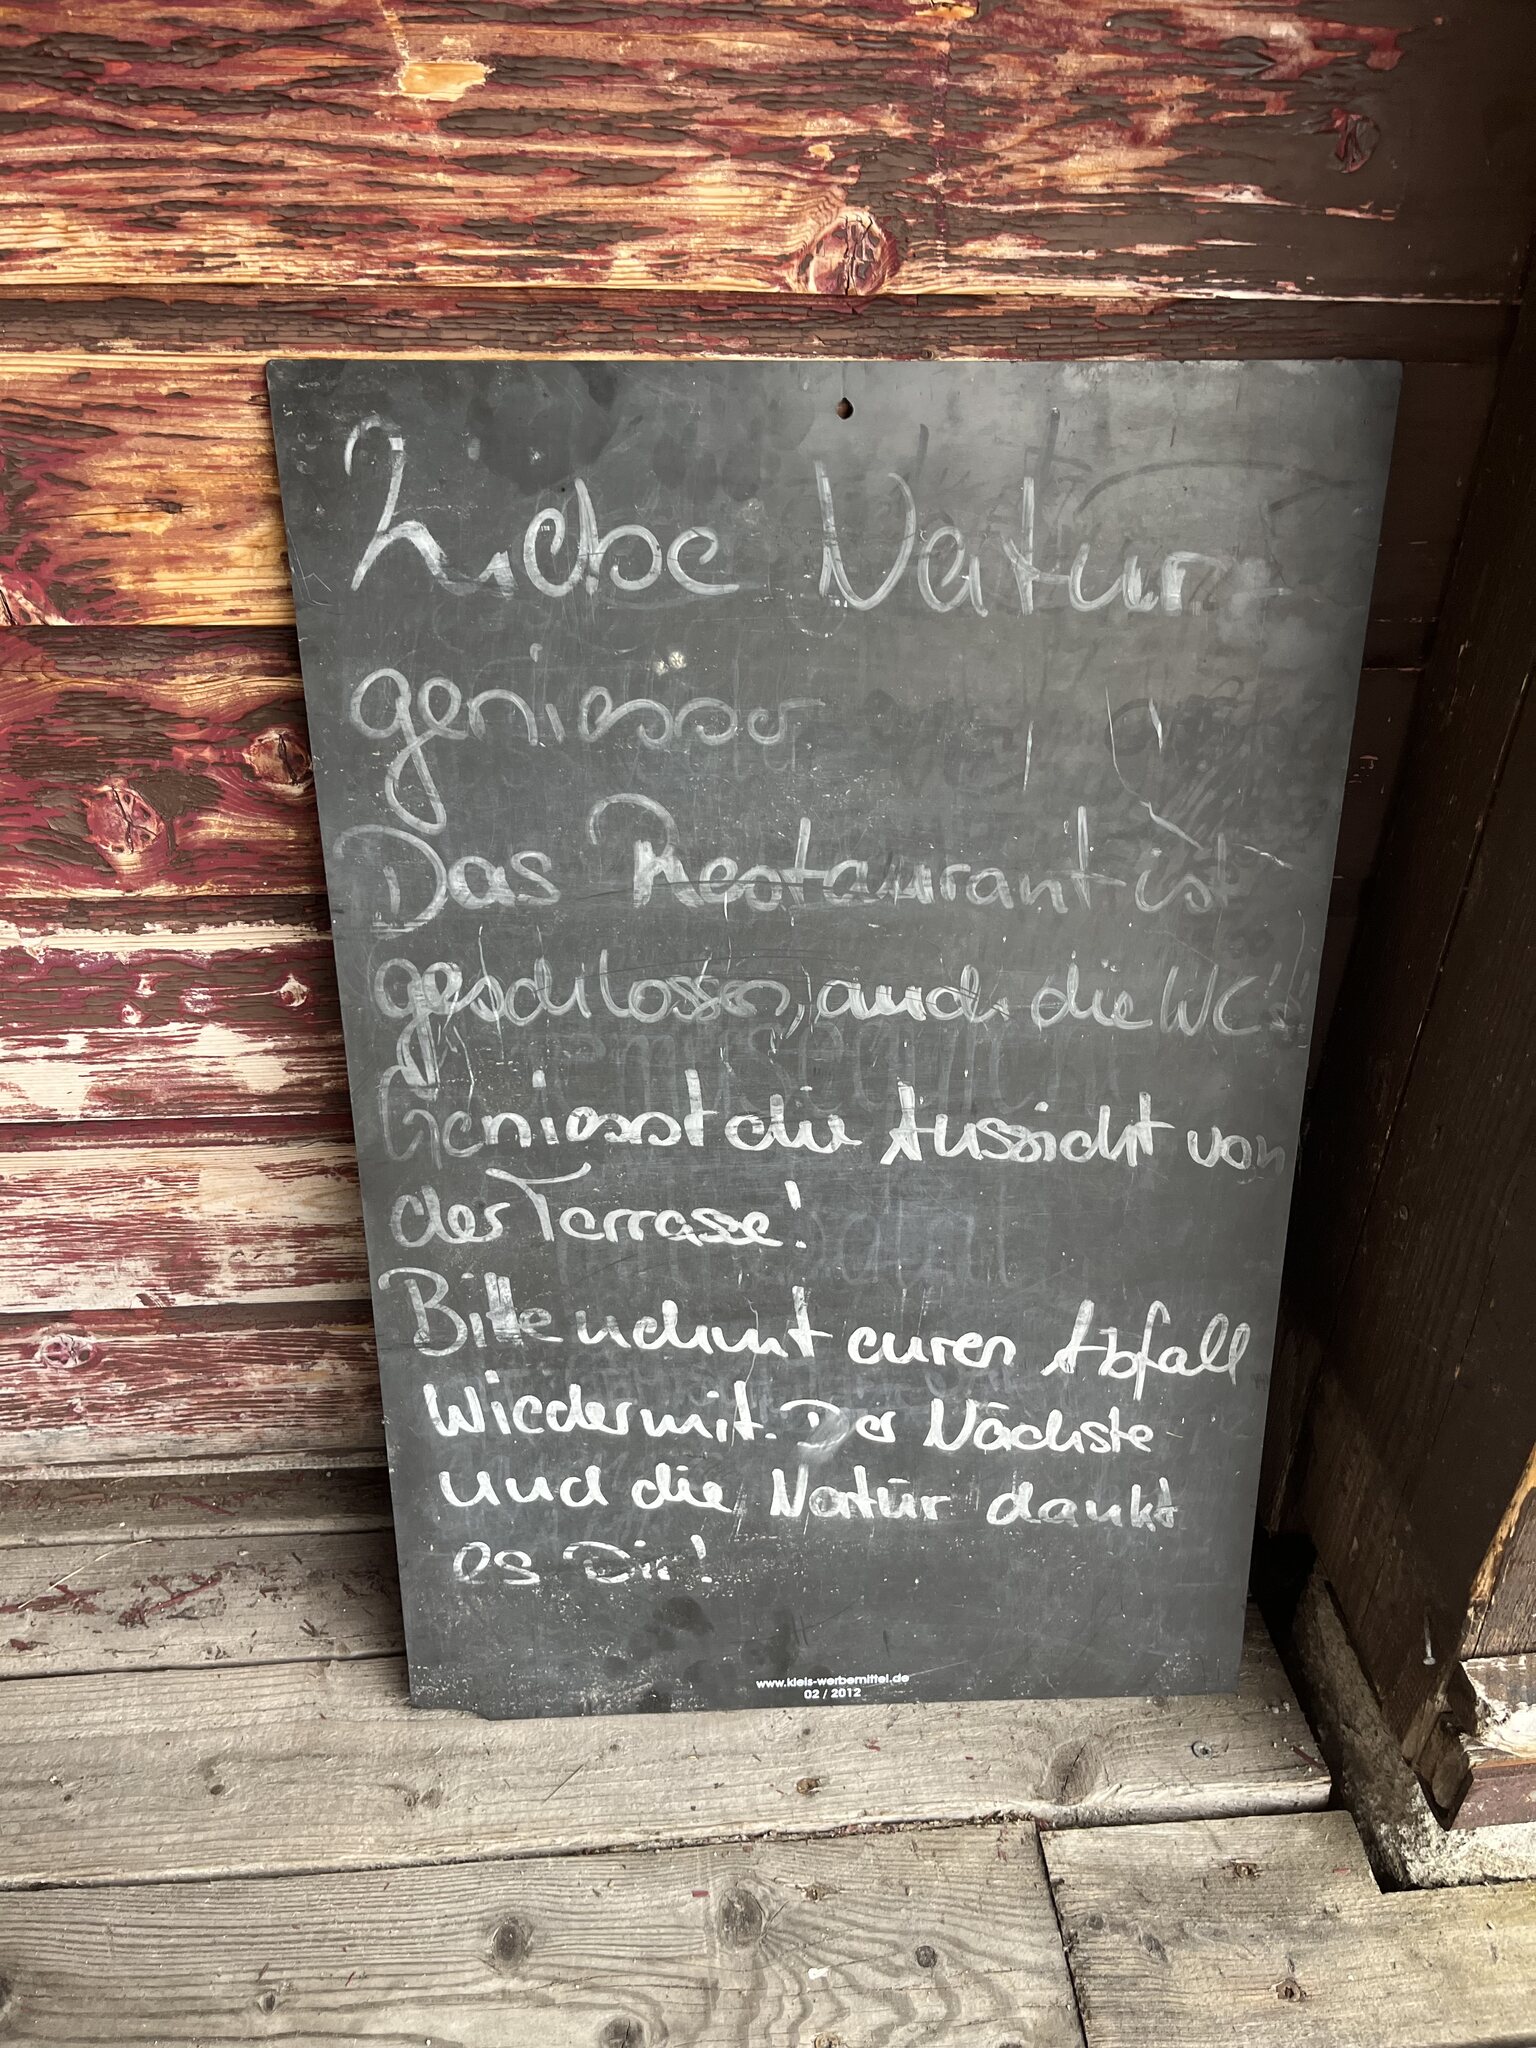 Liebe Natur-
geniesser
Das Restaurant ist
geschlossen, auch die WC's!
Geniesst die Aussicht von
der Terrasse!
Bitte nehmt euren Abfall
wieder mit. Der Nächste
und die Natur dankt
es Dir!
www.kleis-werbemittel.de
02 / 2012